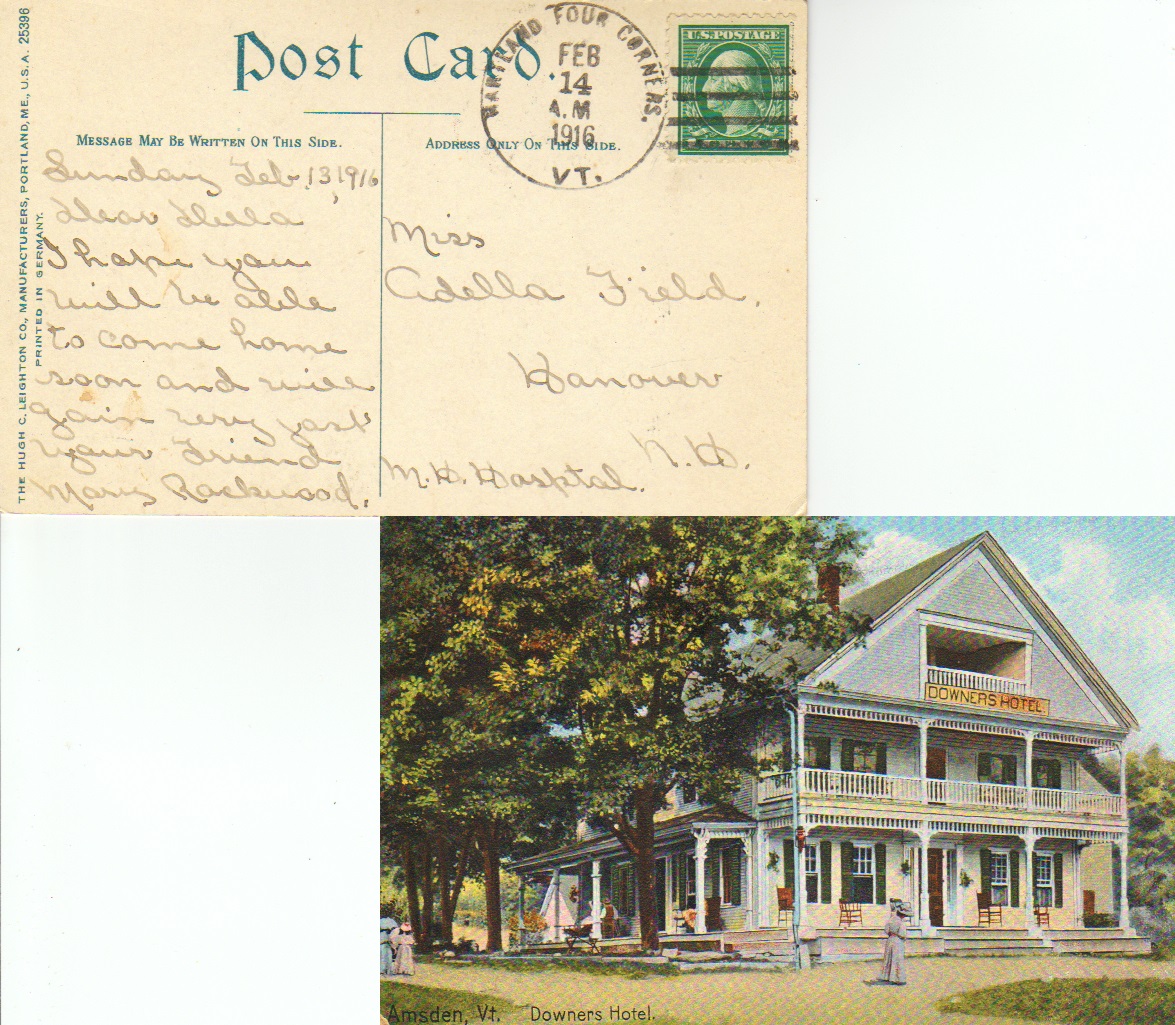 THE HUGH C. LEIGHTON CO., MANUFACTURERS, PORTLAND, ME., U.S.A. 25396
PRINTED IN GERMANY.
Post Card.
HARTLAND FOUR CORNERS.
FEB
14
A.M
1916
VT.
U.S. POSTAGE
MESSAGE MAY BE WRITTEN ON THIS SIDE.
ADDRESS ONLY ON THIS SIDE.
Sunday Feb. 13, 1916
Dear Della
I hope you
will be able
to come home
soon and will
gain very fast
your Friend
Mary Rockwood.
Miss
Adella Field,
Hanover
N.H.
M.H. Hosptal.
DOWNERS HOTEL.
Amsden, Vt. Downers Hotel.